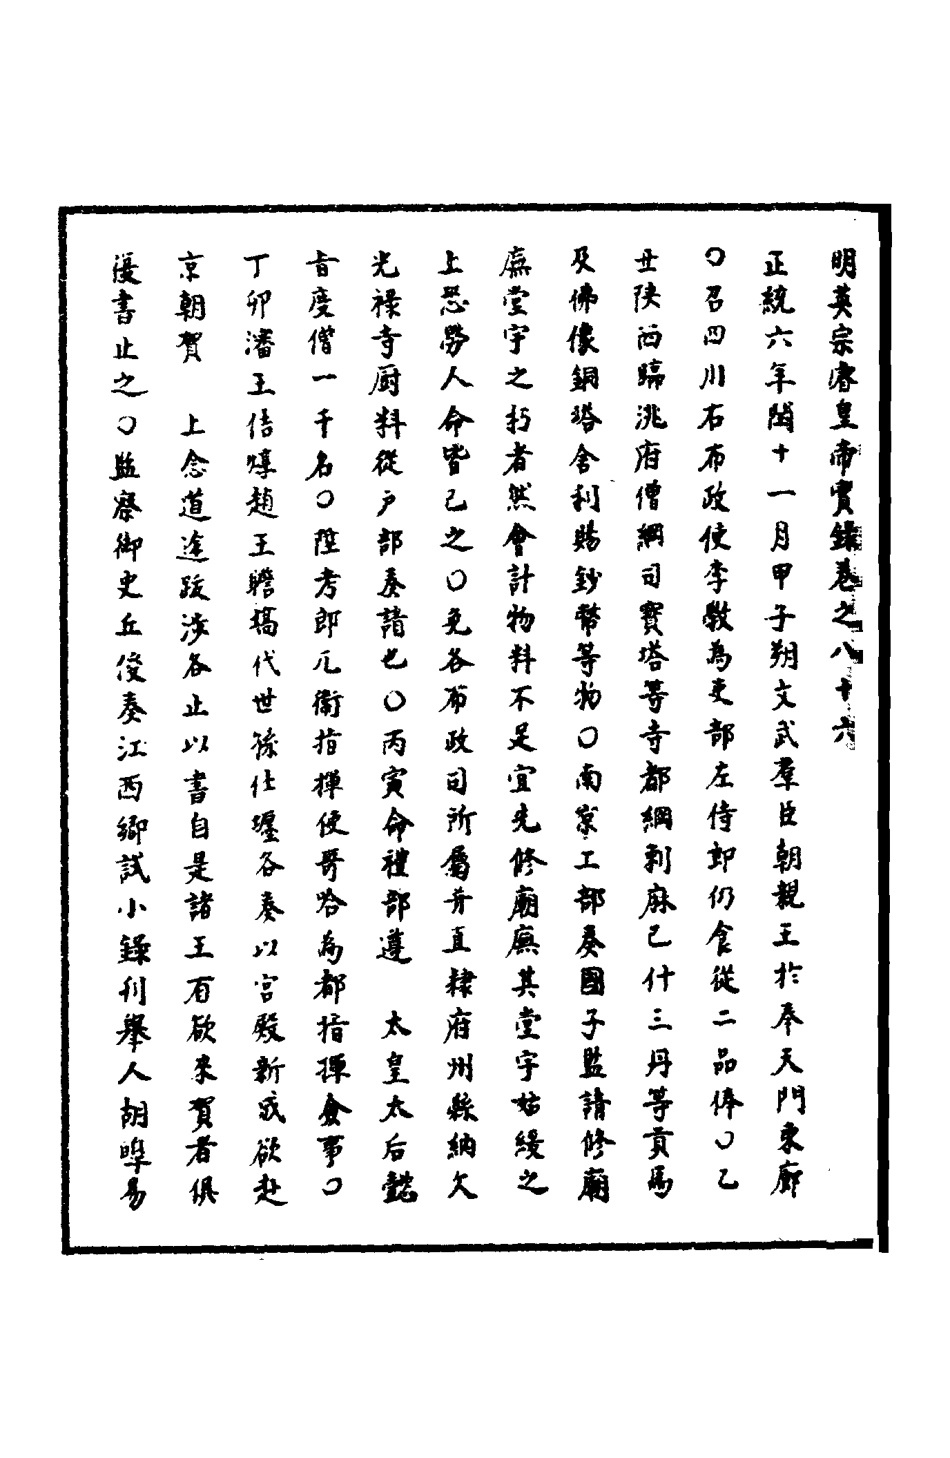 明英宗睿皇帝實錄卷之八十六
正統六年閏十一月甲子朔文武羣臣朝親王於奉天門東廊
〇召四川右布政使李敩為吏部左侍郎仍食從二品俸〇乙
丑陝西臨洮府僧綱司寶塔等寺都綱剌麻已什三丹等貢馬
及佛像銅塔舍利賜鈔幣等物〇南京工部奏國子監請修廟
廡堂宇之朽者然會計物料不足宜先修廟廡其堂宇姑緩之
上恐勞人命皆已之〇免各布政司所屬并直隸府州縣納欠
光祿寺厨料從户部奏請也〇丙寅命禮部遵　太皇太后懿
旨度僧一千名〇陞考郎兀衛指揮使哥哈為都指揮僉事〇
丁卯瀋王佶焞趙王瞻塙代世孫仕㙻各奏以宮殿新成欲赴
京朝賀　上念道途跋涉各止以書自是諸王有欲来賀者俱
復書止之〇監察御史丘俊奏江西鄉試小錄刊舉人胡皞易